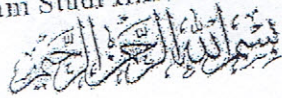 Studi
بسم الله الرحمن الرحيم